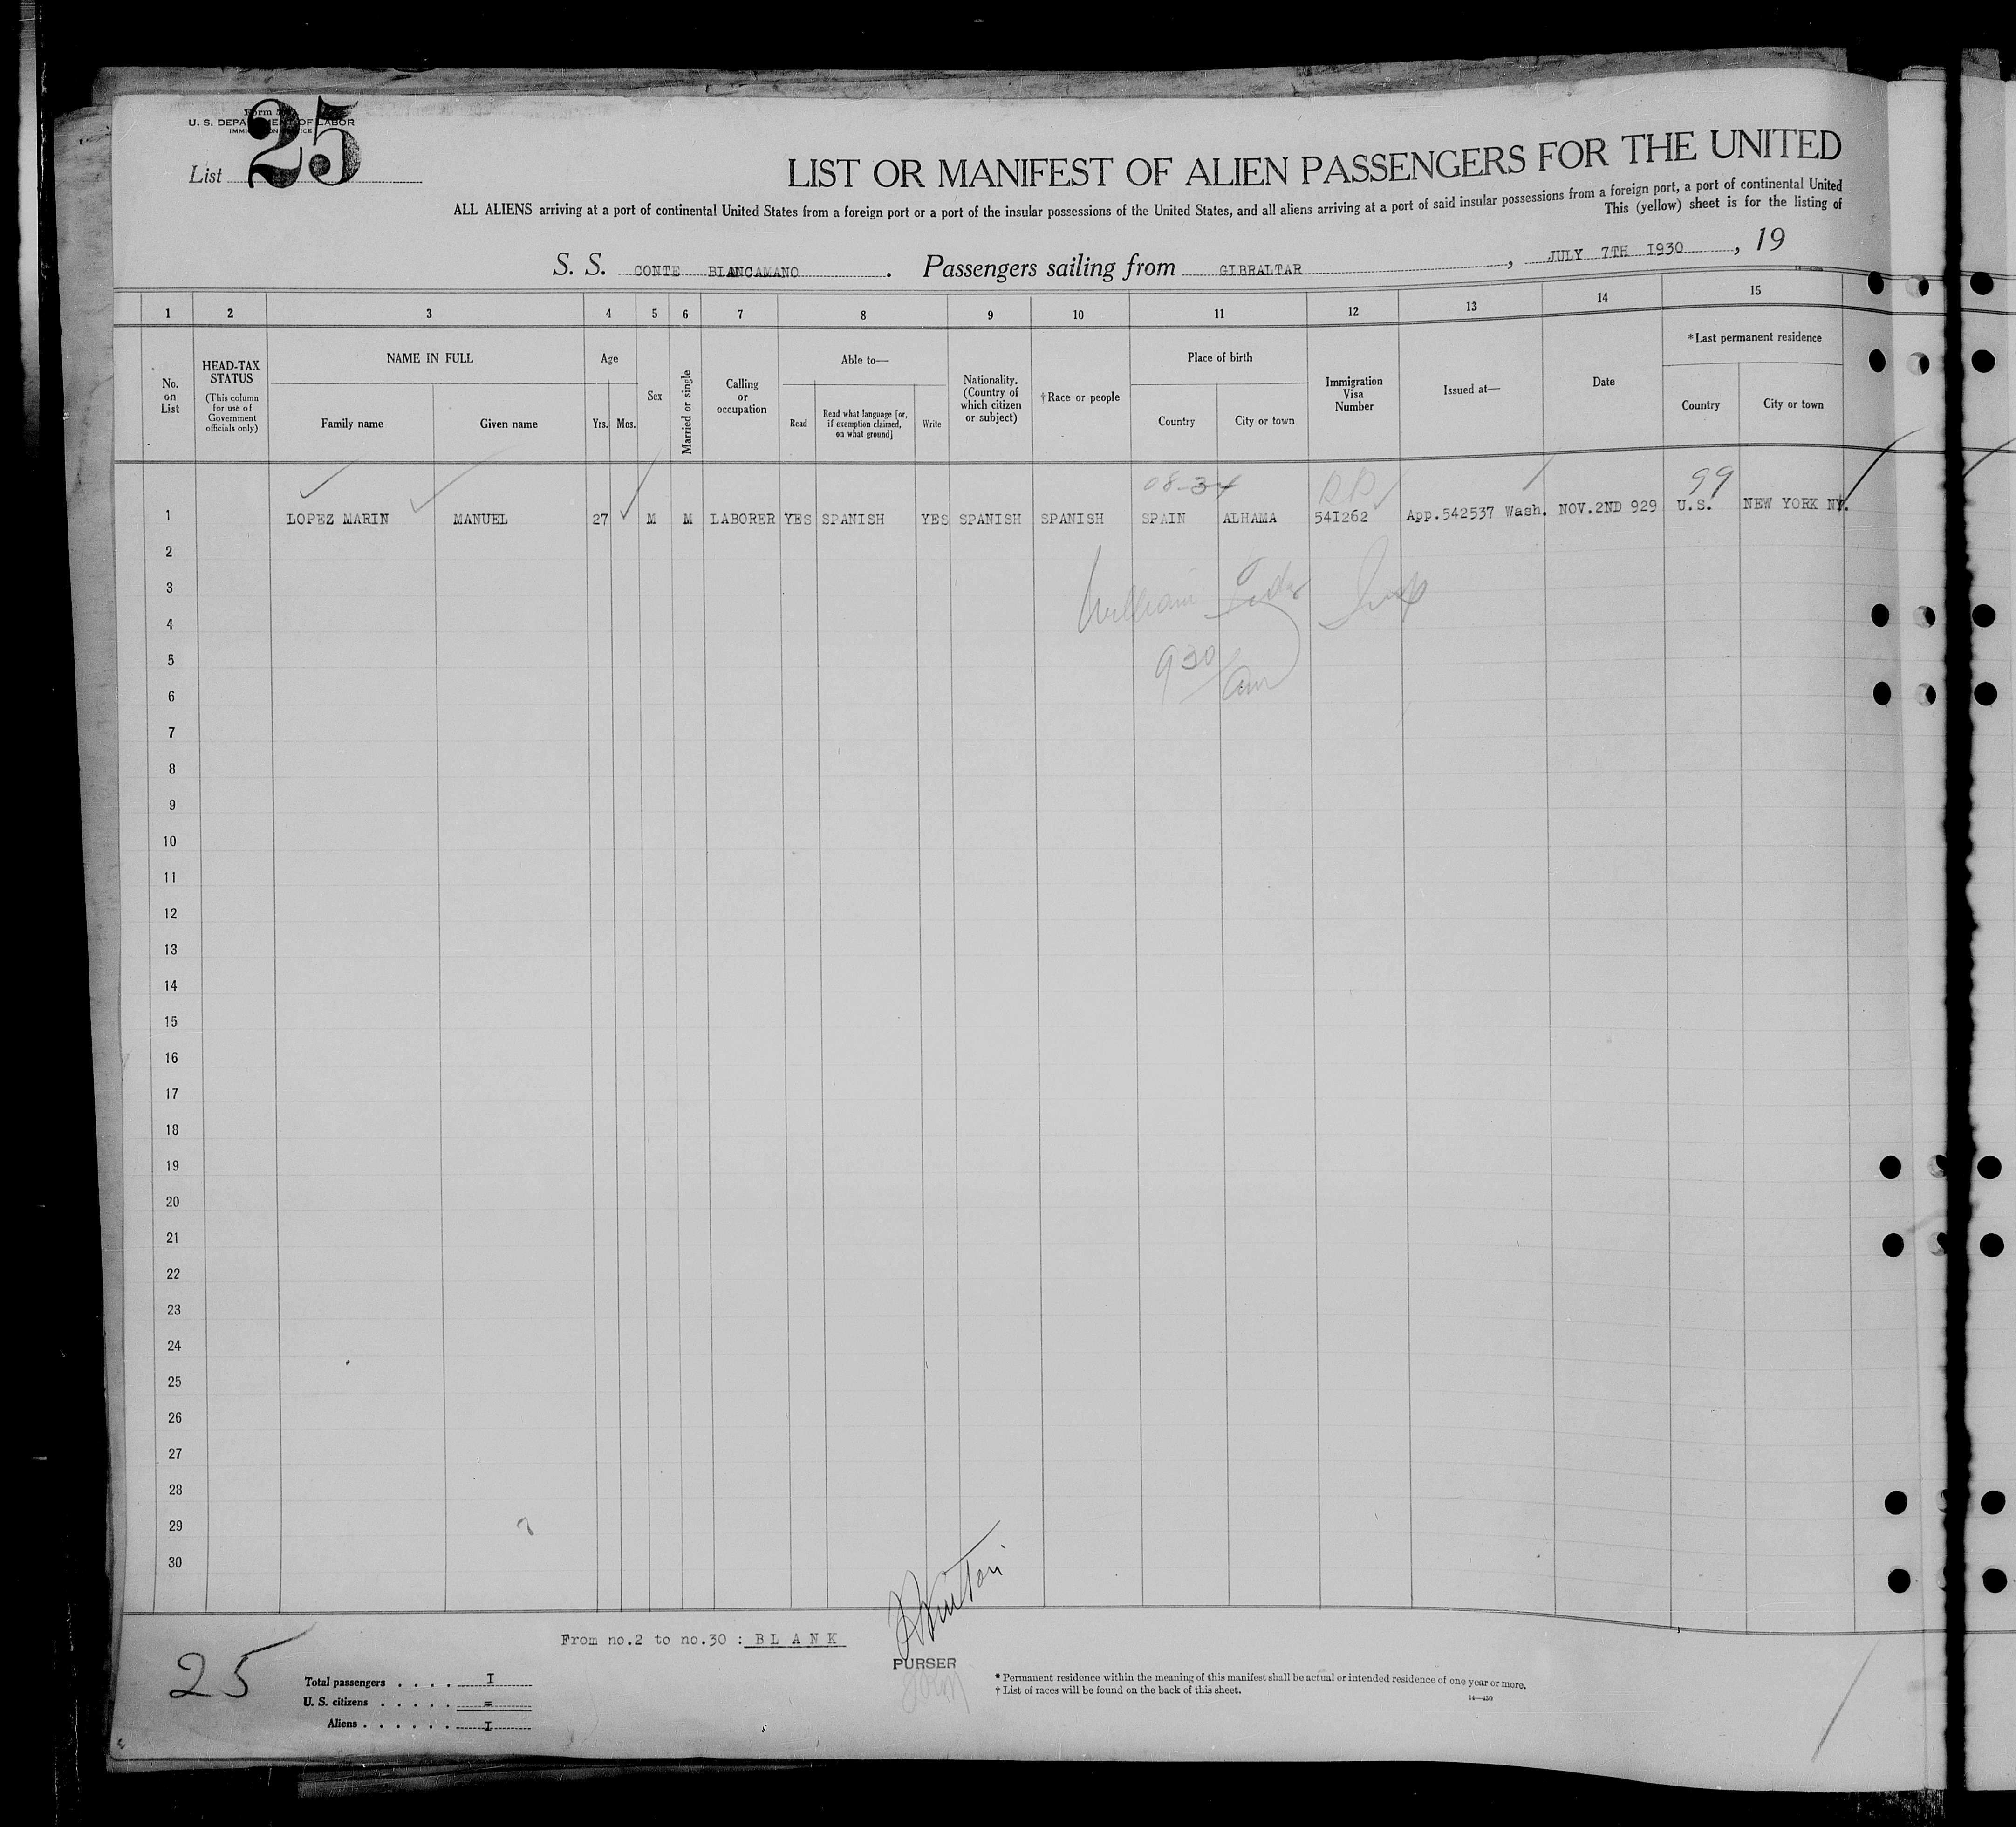 Form 500
U. S. DEPARTMENT OF LABOR
IMMIGRATION SERVICE
List 25
LIST OR MANIFEST OF ALIEN PASSENGERS FOR THE UNITED
ALL ALIENS arriving at a port of continental United States from a foreign port or a port of the insular possessions of the United States, and all aliens arriving at a port of said insular possessions from a foreign port, a port of continental United
This (yellow) sheet is for the listing of
S. S. CONTE BIANCAMANO . Passengers sailing from GIBRALTAR , JULY 7TH I930 , 19
1 2 3 4 5 6 7 8 9 10 11 12 13 14 15
No. on List
HEAD-TAX STATUS (This column for use of Government officials only)
NAME IN FULL
Family name Given name
Age
Yrs. Mos.
Sex
Married or single
Calling or occupation
Able to—
Read Read what language [or, if exemption claimed, on what ground] Write
Nationality. (Country of which citizen or subject)
†Race or people
Place of birth
Country City or town
Immigration Visa Number
Issued at—
Date
*Last permanent residence
Country City or town
08-34 99
1 LOPEZ MARIN MANUEL 27 M M LABORER YES SPANISH YES SPANISH SPANISH SPAIN ALHAMA 54I262 App.542537 Wash. NOV.2ND 929 U.S. NEW YORK NY.
2
3 William
4
5 930
6 am
7
8
9
10
11
12
13
14
15
16
17
18
19
20
21
22
23
24
25
26
27
28
29
30
From no.2 to no.30 : B L A N K
PURSER
25
Total passengers . . . . I
U. S. citizens . . . . . =
Aliens . . . . . . I
* Permanent residence within the meaning of this manifest shall be actual or intended residence of one year or more.
† List of races will be found on the back of this sheet.
14—430